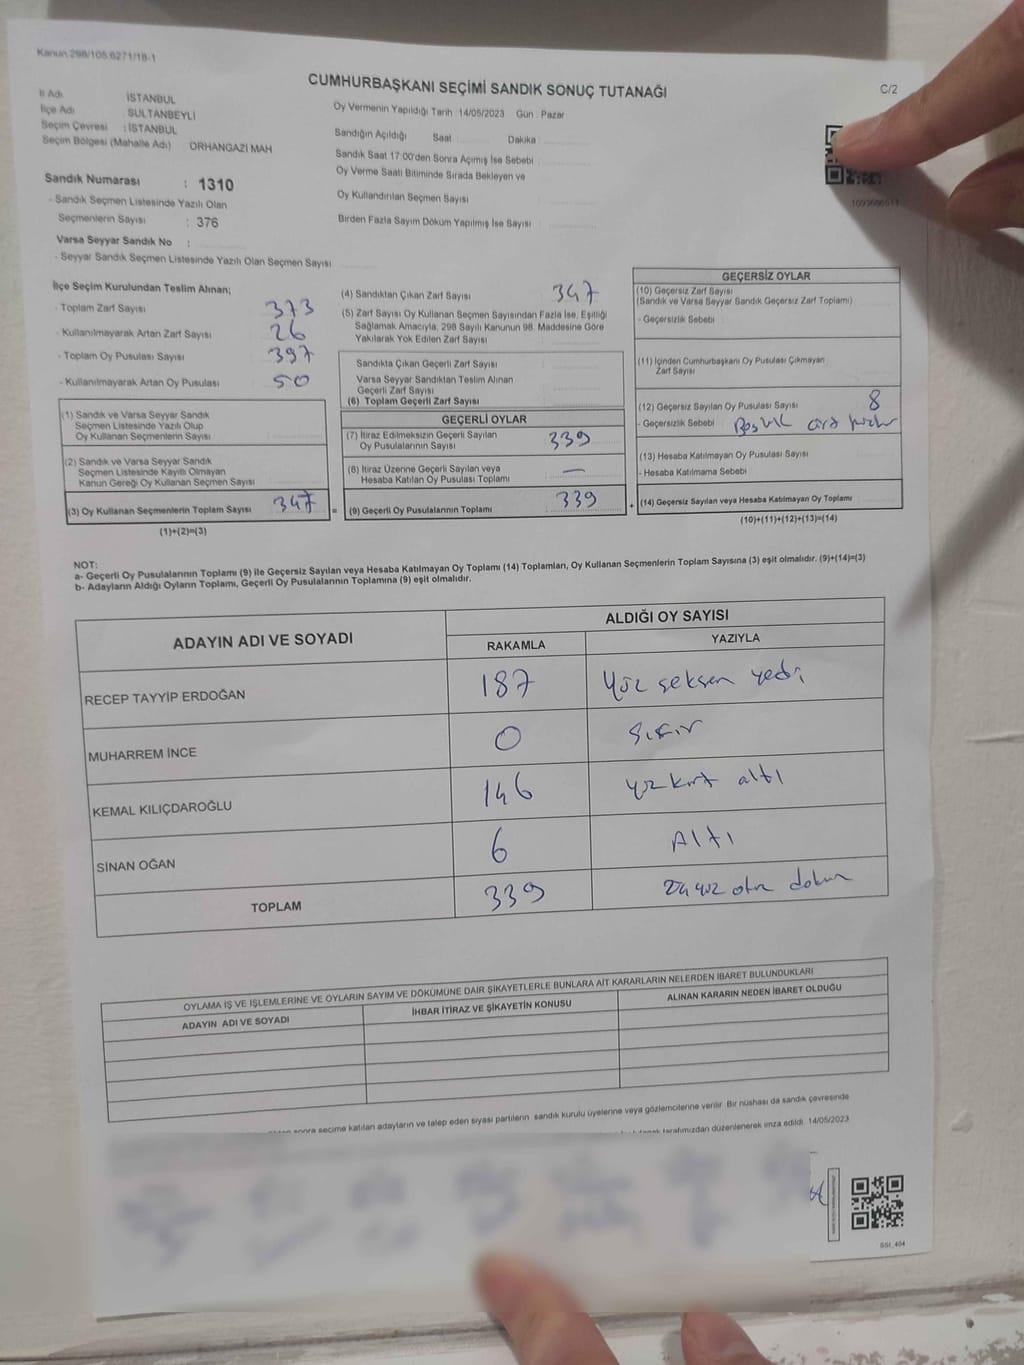 Kanun:298/105;6271/18-1
CUMHURBAŞKANI SEÇİMİ SANDIK SONUÇ TUTANAĞI
C/2
İl Adı İSTANBUL
İlçe Adı SULTANBEYLİ
Seçim Çevresi : İSTANBUL
Seçim Bölgesi (Mahalle Adı) ORHANGAZI MAH
Oy Vermenin Yapıldığı Tarih : 14/05/2023 Gün : Pazar
Sandığın Açıldığı Saat : Dakika :
Sandık Saat 17:00'den Sonra Açımış İse Sebebi
Oy Verme Saati Bitiminde Sırada Bekleyen ve
Oy Kullandırılan Seçmen Sayısı
Birden Fazla Sayım Döküm Yapılmış İse Sayısı
Sandık Numarası : 1310
- Sandık Seçmen Listesinde Yazılı Olan
Seçmenlerin Sayısı : 376
Varsa Seyyar Sandık No :
- Seyyar Sandık Seçmen Listesinde Yazılı Olan Seçmen Sayısı
İlçe Seçim Kurulundan Teslim Alınan;
- Toplam Zarf Sayısı 373
- Kullanılmayarak Artan Zarf Sayısı 26
- Toplam Oy Pusulası Sayısı 397
- Kullanılmayarak Artan Oy Pusulası 50
(1) Sandık ve Varsa Seyyar Sandık
Seçmen Listesinde Yazılı Olup
Oy Kullanan Seçmenlerin Sayısı
(2) Sandık ve Varsa Seyyar Sandık
Seçmen Listesinde Kayıtlı Olmayan
Kanun Gereği Oy Kullanan Seçmen Sayısı
(3) Oy Kullanan Seçmenlerin Toplam Sayısı 347
(1)+(2)=(3)
(4) Sandıktan Çıkan Zarf Sayısı 347
(5) Zarf Sayısı Oy Kullanan Seçmen Sayısından Fazla İse, Eşitliği
Sağlamak Amacıyla, 298 Sayılı Kanunun 98. Maddesine Göre
Yakılarak Yok Edilen Zarf Sayısı
Sandıkta Çıkan Geçerli Zarf Sayısı
Varsa Seyyar Sandıktan Teslim Alınan
Geçerli Zarf Sayısı
(6) Toplam Geçerli Zarf Sayısı
GEÇERLİ OYLAR
(7) İtiraz Edilmeksizin Geçerli Sayılan
Oy Pusulalarının Sayısı 339
(8) İtiraz Üzerine Geçerli Sayılan veya
Hesaba Katılan Oy Pusulası Toplamı —
= (9) Geçerli Oy Pusulalarının Toplamı 339
GEÇERSİZ OYLAR
(10) Geçersiz Zarf Sayısı
(Sandık ve Varsa Seyyar Sandık Geçersiz Zarf Toplamı)
- Geçersizlik Sebebi
(11) İçinden Cumhurbaşkanı Oy Pusulası Çıkmayan
Zarf Sayısı
(12) Geçersiz Sayılan Oy Pusulası Sayısı 8
- Geçersizlik Sebebi
(13) Hesaba Katılmayan Oy Pusulası Sayısı
- Hesaba Katılmama Sebebi
+ (14) Geçersiz Sayılan veya Hesaba Katılmayan Oy Toplamı
(10)+(11)+(12)+(13)=(14)
NOT:
a- Geçerli Oy Pusulalarının Toplamı (9) ile Geçersiz Sayılan veya Hesaba Katılmayan Oy Toplamı (14) Toplamları, Oy Kullanan Seçmenlerin Toplam Sayısına (3) eşit olmalıdır. (9)+(14)=(3)
b- Adayların Aldığı Oyların Toplamı, Geçerli Oy Pusulalarının Toplamına (9) eşit olmalıdır.
ADAYIN ADI VE SOYADI ALDIĞI OY SAYISI
RAKAMLA YAZIYLA
RECEP TAYYİP ERDOĞAN 187 Yüz seksen yedi
MUHARREM İNCE 0 Sıfır
KEMAL KILIÇDAROĞLU 146 yüz kırk altı
SİNAN OĞAN 6 Altı
TOPLAM 339
OYLAMA İŞ VE İŞLEMLERİNE VE OYLARIN SAYIM VE DÖKÜMÜNE DAİR ŞİKAYETLERLE BUNLARA AİT KARARLARIN NELERDEN İBARET BULUNDUKLARI
ADAYIN ADI VE SOYADI İHBAR İTİRAZ VE ŞİKAYETİN KONUSU ALINAN KARARIN NEDEN İBARET OLDUĞU
sonra seçime katılan adayların ve talep eden siyasi partilerin sandık kurulu üyelerine veya gözlemcilerine verilir. Bir nüshası da sandık çevresinde
tarafımızdan düzenlenerek imza edildi. 14/05/2023
SSI_404